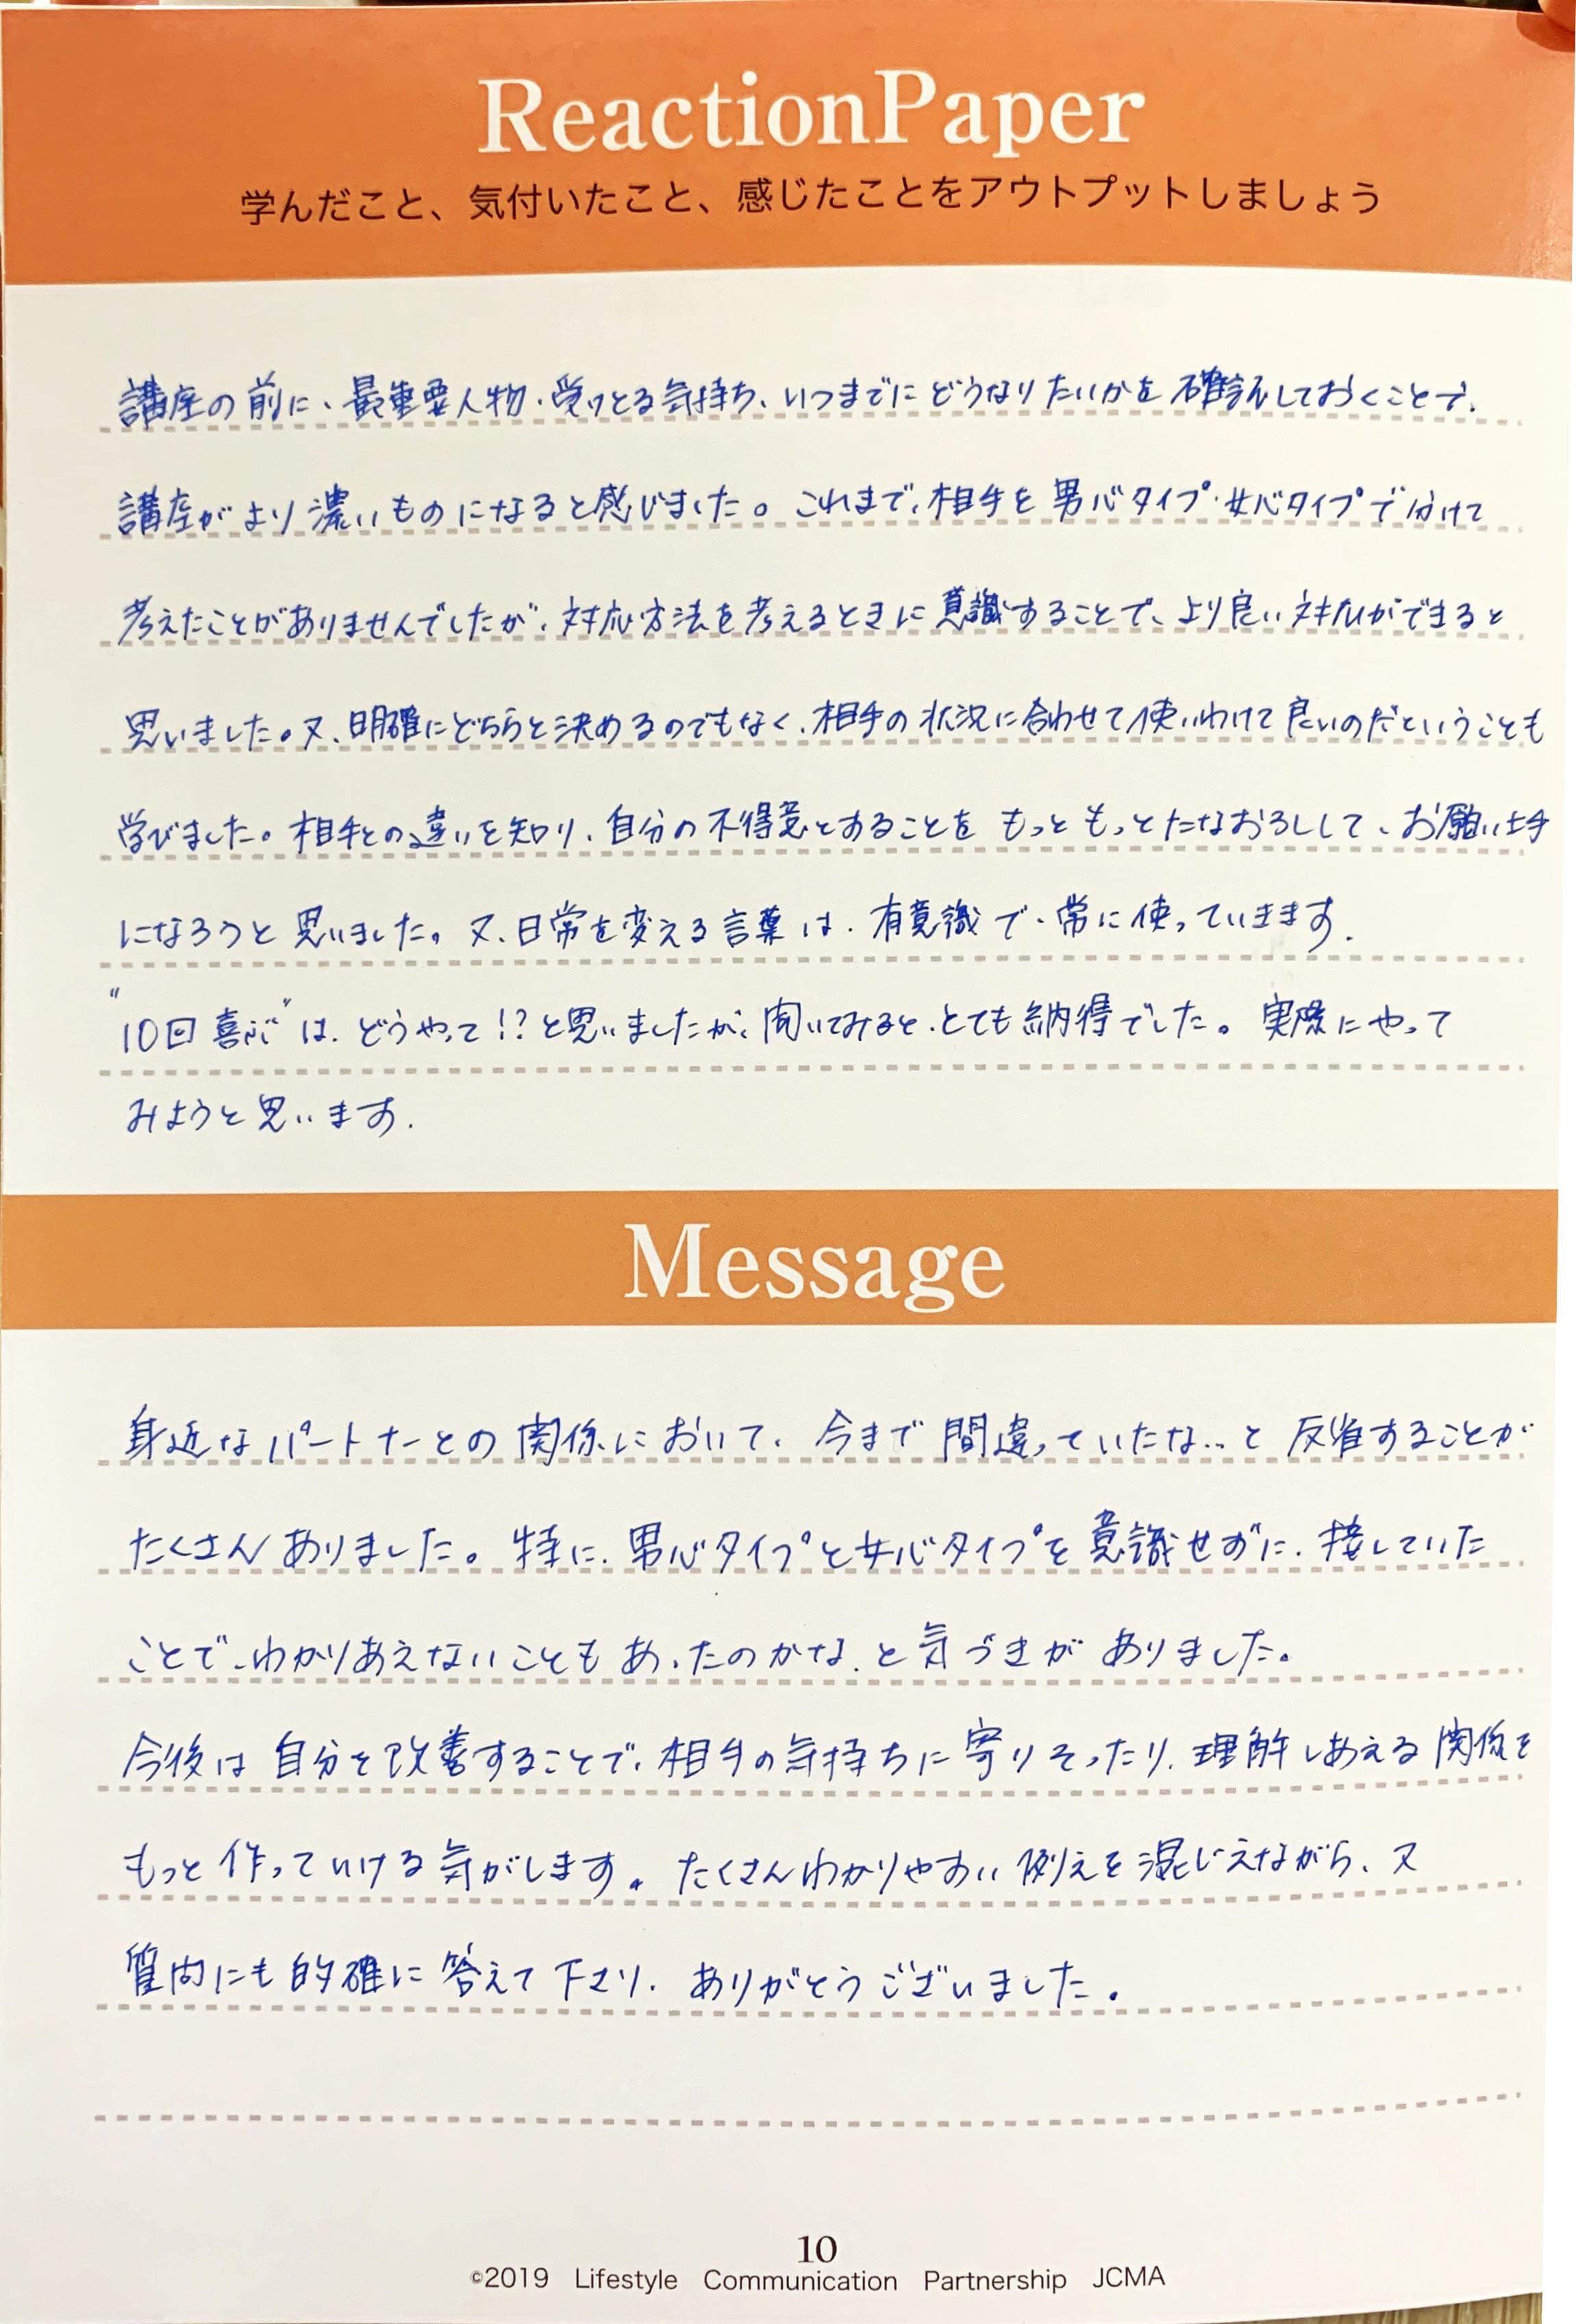 ReactionPaper
学んだこと、気付いたこと、感じたことをアウトプットしましょう
講座の前に、最重要人物・受けとる気持ち、いつまでにどうなりたいかを確認しておくことで、
講座がより濃いものになると感じました。これまで、相手を男心タイプ・女心タイプで分けて
考えたことがありませんでしたが、対応方法を考えるときに意識することで、より良い対応ができると
思いました。又、明確にどちらと決めるのでもなく、相手の状況に合わせて使いわけて良いのだということも
学びました。相手との違いを知り、自分の不得意とすることをもっともっとたなおろしして、お願い上手
になろうと思いました。又、日常を変える言葉は、有意識で、常に使っていきます。
"10回喜ぶ"は、どうやって!?と思いましたが、聞いてみると、とても納得でした。実際にやって
みようと思います。
Message
身近なパートナーとの関係において、今まで間違っていたな…と反省することが
たくさんありました。特に、男心タイプと女心タイプを意識せずに、接していた
ことで、わかりあえないこともあったのかな、と気づきがありました。
今後は自分を改善することで、相手の気持ちに寄りそったり、理解しあえる関係を
もっと作っていける気がします。たくさんわかりやすい例えを混じえながら、又
質問にも的確に答えて下さり、ありがとうございました。
10
©2019 Lifestyle Communication Partnership JCMA